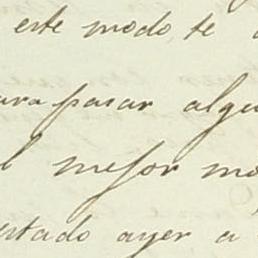 este modo, te
para pasar algu
l mejor mo
estado ayer a